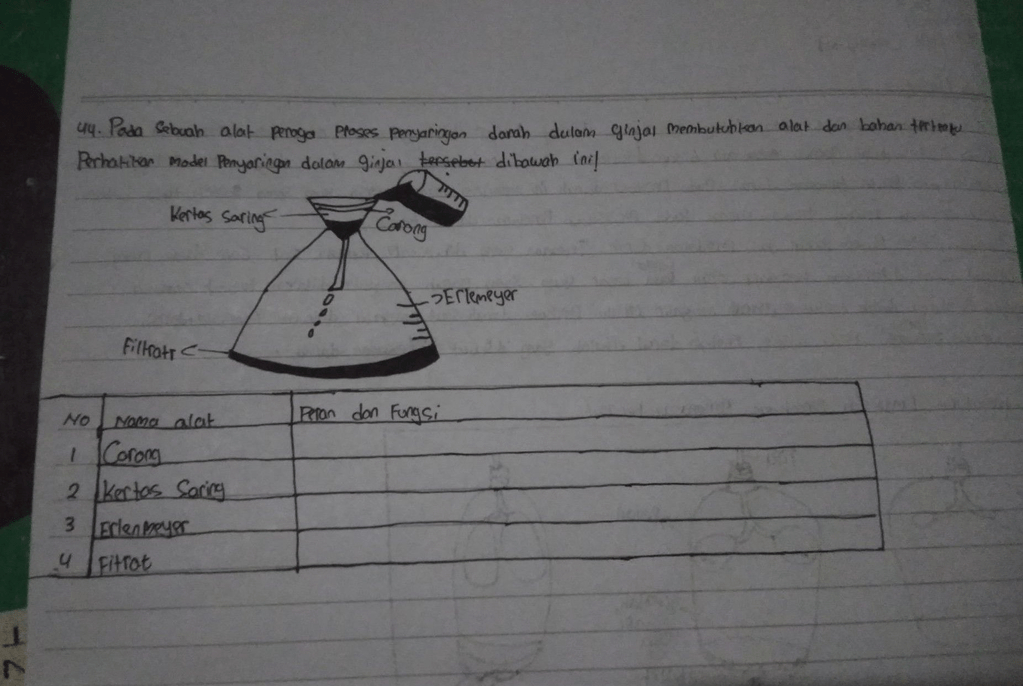 44. Pada Sebuah alat peraga Proses penyaringan darah dalam ginjal membutuhkan alat dan bahan tertentu
Perhatikan model Penyaringan dalam ginjal tersebut dibawah ini!
Kertas saring
Corong
Erlemeyer
Filtratr
No Nama alat Peran dan Fungsi
1 Corong
2 Kertas Saring
3 Erlenmeyer
4 Fitrat